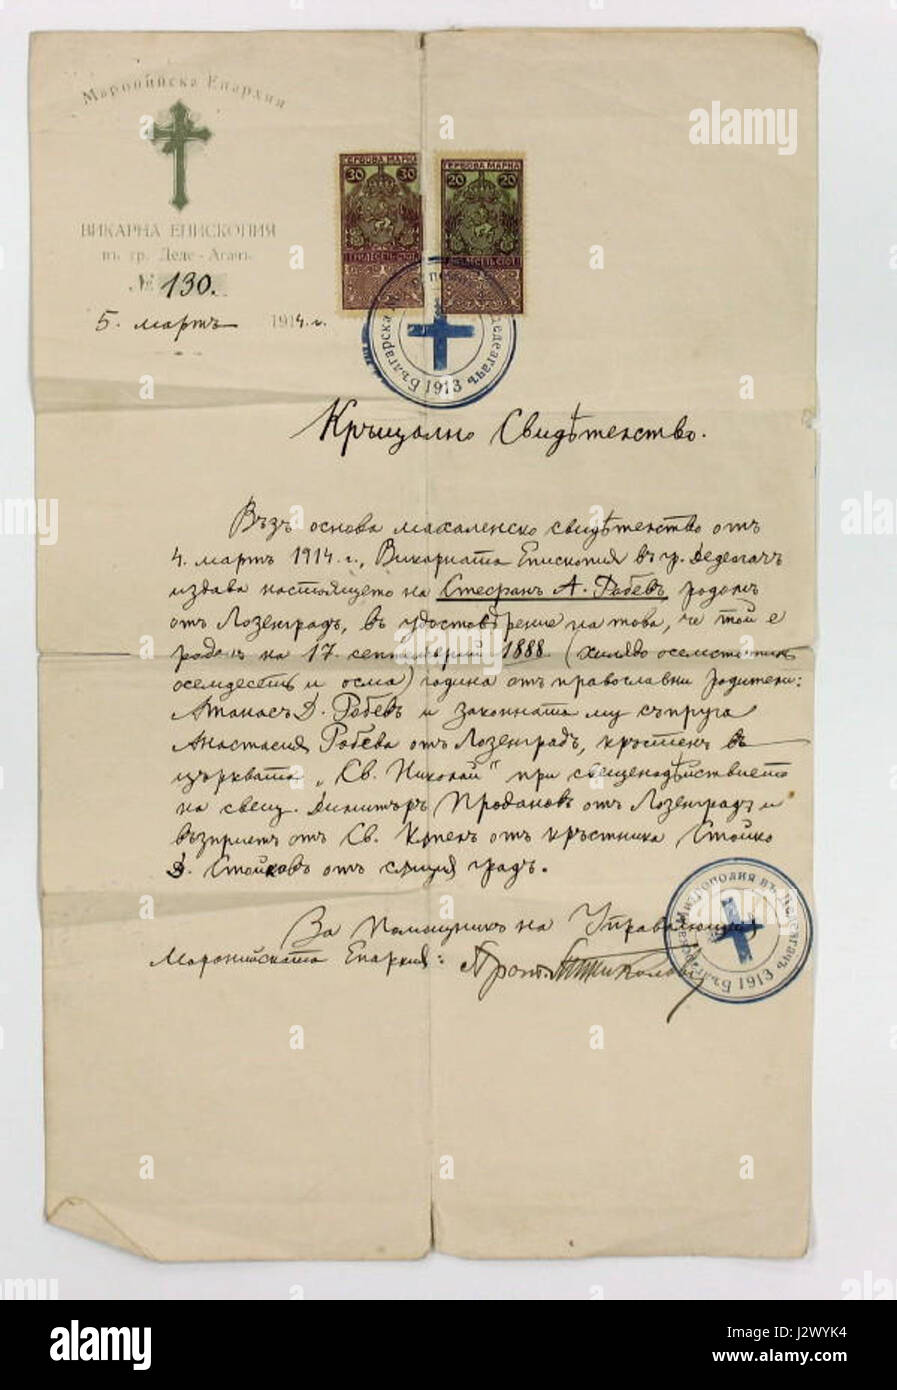 Маронийска Епархия
ВИКАРНА ЕПИСКОПИЯ
въ гр. Деде-Агачъ
№ 130.
5. мартъ 1914 г.
ГЕРБОВА МАРКА
30 30
ГЕРБОВА МАРКА
20 20
1913
Кръщално Свидѣтелство.
Възъ основа махаленско свидѣтелство отъ
4. мартъ 1914 г., Викарната Епископия въ гр. Дедеагачъ
издава настоящето на Стефанъ А. Робевъ, родомъ
отъ Лозенградъ, въ удостовѣрение на това, че той е
роденъ на 17. септемврий 1888 (хилядо осемстотинъ
осемдесетъ и осма) година отъ православни родители:
Атанасъ Д. Робевъ и законната му съпруга
Анастасия Робева отъ Лозенградъ, кръстенъ въ
църквата „Св. Николай" при свещенодѣйствието
на свещ. Димитъръ Продановъ отъ Лозенградъ и
възприетъ отъ Св. Купелъ отъ кръстника Стойко
Д. Стойковъ отъ същия градъ.
За Помощникъ на Управляющия
Маронийската Епархия: Прот. Николовъ
Българска Митрополия въ Дедеагачъ 1913
alamy stock photo
alamy
Image ID: J2WYK4
www.alamy.com